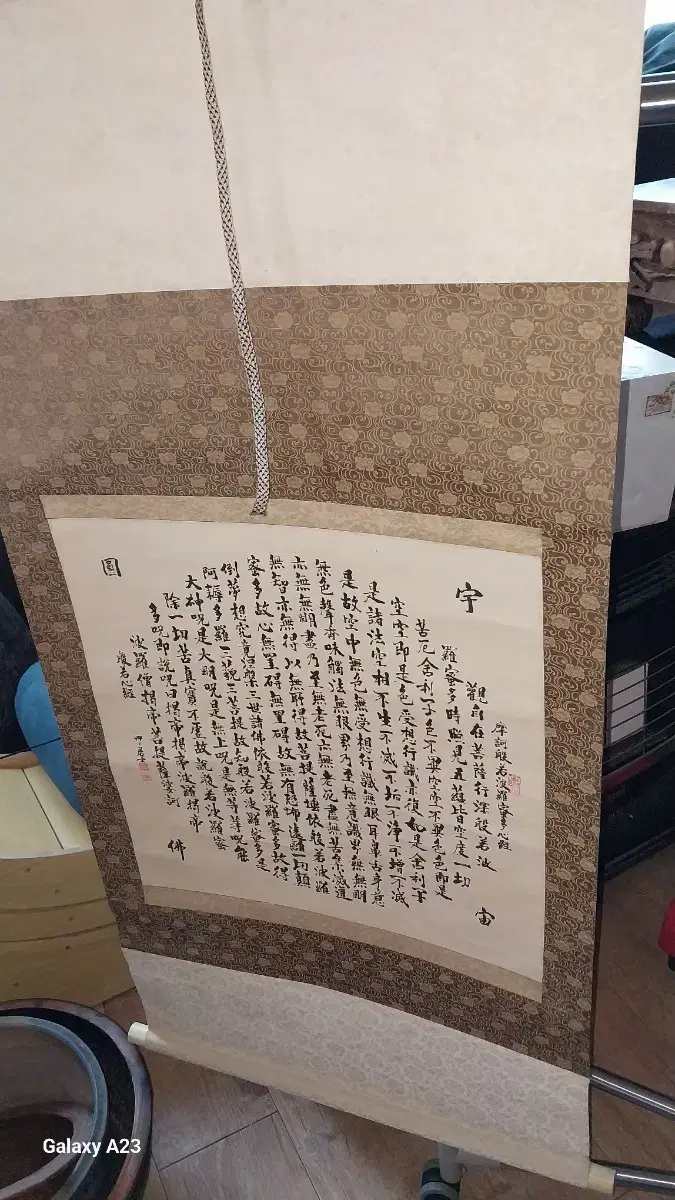 宇
摩訶般若波羅蜜多心經
觀自在菩薩行深般若波
羅蜜多時照見五蘊皆空度一切
苦厄舍利子色不異空空不異色色即是
空空即是色受想行識亦復如是舍利子
是諸法空相不生不滅不垢不淨不增不減
是故空中無色無受想行識無眼耳鼻舌身意
無色聲香味觸法無眼界乃至無意識界無無明
亦無無明盡乃至無老死亦無老死盡無苦集滅道
無智亦無得以無所得故菩提薩埵依般若波羅
蜜多故心無罣碍無罣碍故無有恐怖遠離一切顛
倒夢想究竟涅槃三世諸佛依般若波羅蜜多故得
阿耨多羅三藐三菩提故知般若波羅蜜多是
大神呪是大明呪是無上呪是無等等呪能
除一切苦真實不虛故說般若波羅蜜
多呪即說呪曰揭帝揭帝波羅揭帝
波羅僧揭帝菩提薩婆訶
般若心經
宙
圓
佛
Galaxy A23